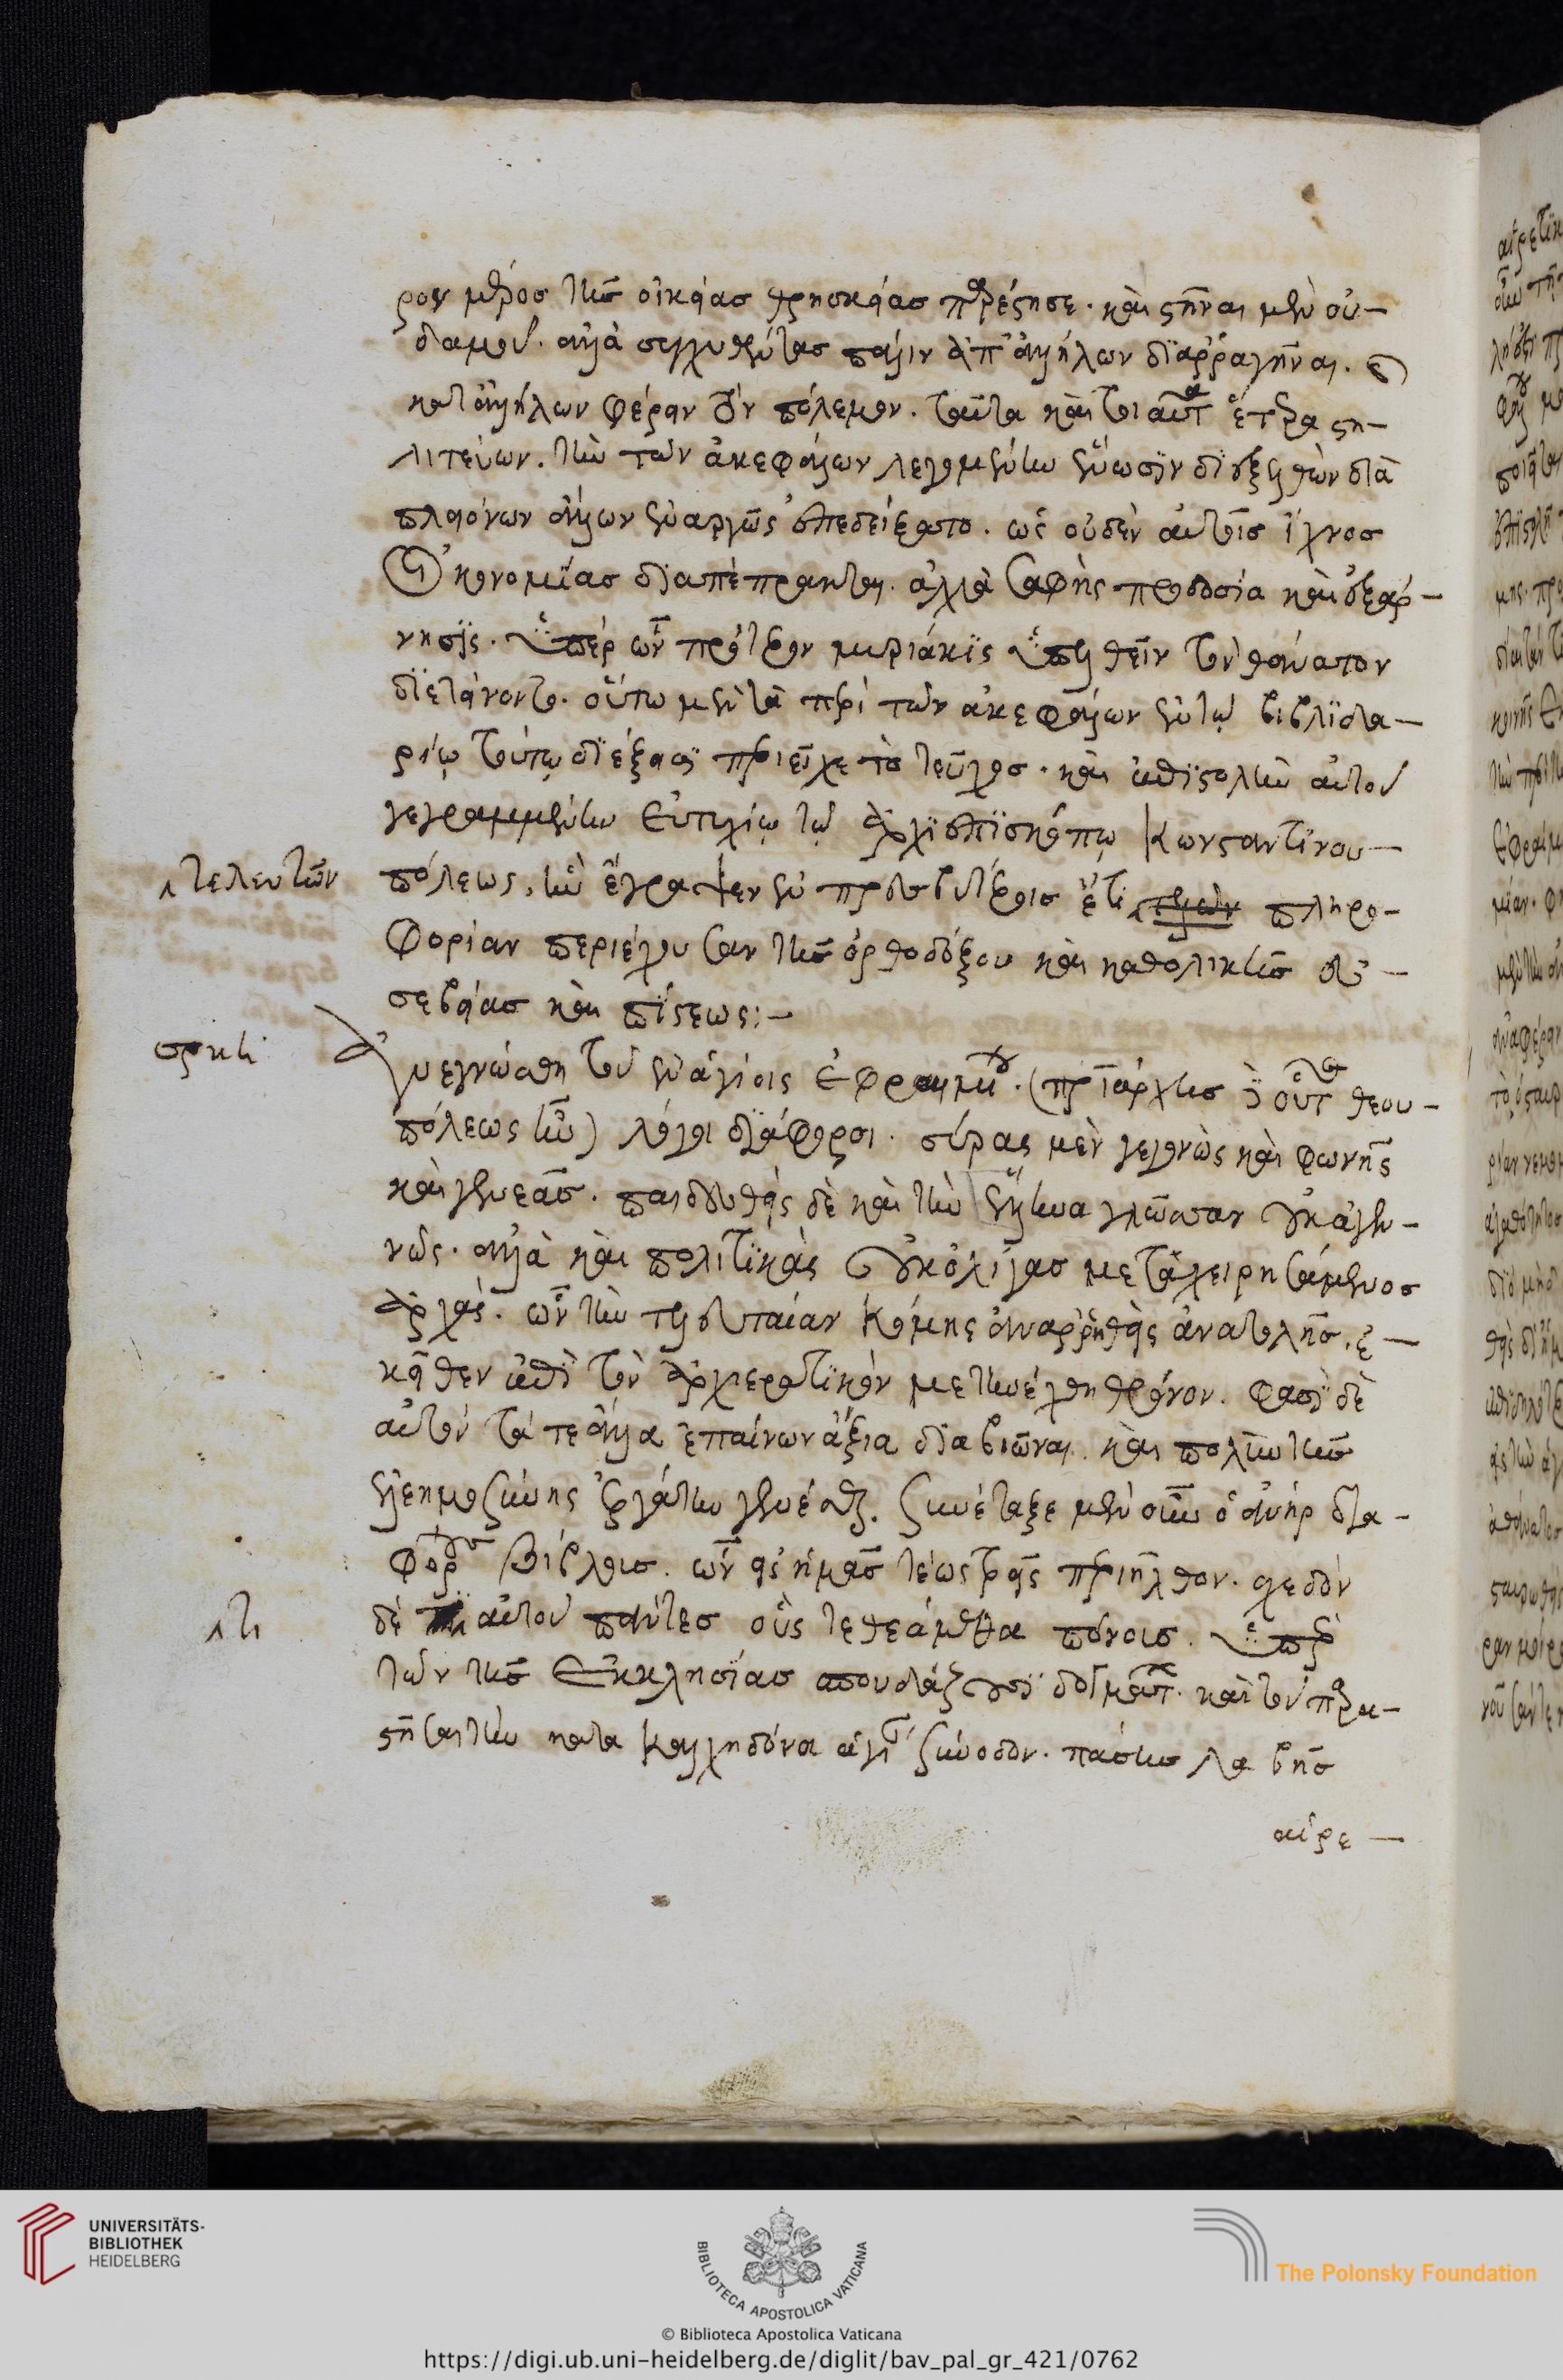 ρον μέρος τῆς οἰκείας θρησκείας παρέστησε· καὶ στῆναι μὲν οὐ-
δαμοῦ. ἀλλὰ συγχυθέντας πάλιν ἀπ' ἀλλήλων διαρραγῆναι. καὶ
κατ' ἀλλήλων φέρειν τὸν πόλεμον. ταῦτα καὶ τοιαῦτα ἕτερα στη-
λιτεύων. τὴν τῶν ἀκεφάλων λεγομένην ἕνωσιν διεξελθὼν διὰ
πλειόνων ἄλλων ἐναργῶς ἐπεδείξατο. ὡς οὐδὲν αὐτοῖς ἴχνος
οἰκονομίας διαπέπρακται. ἀλλὰ σαφὴς προδοσία καὶ ἐξάρ-
νησις. ὑπὲρ ὧν πρότερον μυριάκις ὑπελθεῖν τὸν θάνατον
διετείνοντο. οὕτω μὲν τὰ περὶ τῶν ἀκεφάλων ἐν τῷ βιβλιδα-
ρίῳ τούτῳ διέξεισι περιεῖχε τὸ τεῦχος. καὶ ἐπιστολὴν αὐτοῦ
γεγραμμένην Εὐτυχίῳ τῷ ἀρχιεπισκόπῳ Κωνσταντινου-
τελευτῶν
πόλεως, ἣν ἔγραψεν ἐν πρεσβυτέροις ἔτι τελῶν πληρο-
φορίαν περιέχουσαν τῆς ὀρθοδόξου καὶ καθολικῆς εὐ-
σεβείας καὶ πίστεως:-
σκη
Ἀνεγνώσθη τοῦ ἐν ἁγίοις Ἐφραιμίου. (πατριάρχης δὲ οὗτος Θεου-
πόλεως ἦν) λόγοι διάφοροι. σύρος μὲν γεγονὼς καὶ φωνῆς
καὶ γενεᾶς. παιδευθεὶς δὲ καὶ τὴν ἕλληνα γλῶσσαν οὐκ ἀγεν-
νῶς. ἀλλὰ καὶ πολιτικὰς οὐκ ὀλίγας μεταχειρησάμενος
ἀρχάς. ὧν τὴν τελευταίαν Κόμης ἀναρρηθεὶς ἀνατολῆς. ἐ-
κεῖθεν ἐπὶ τὸν ἀρχιερατικὸν μετηνέχθη θρόνον. φασὶ δὲ
αὐτὸν τά τε ἄλλα ἐπαίνων ἄξια διαβιῶναι. καὶ πολλὴν τῆς
ἐλεημοσύνης ἐργάτην γενέσθαι. συνέταξε μὲν οὖν ὁ ἀνὴρ δια-
φόρους βίβλους. ὧν εἰς ἡμᾶς τέως τρεῖς περιῆλθον. σχεδὸν
τι
δὲ αὐτοῦ πάντες οὓς τεθεάμεθα πόνους. ὑπὲρ
τῶν τῆς Ἐκκλησίας σπουδάζουσι δογμάτων. καὶ τοῦ παρα-
στῆσαι τὴν κατὰ Καλχηδόνα ἁγίαν σύνοδον. πάσης λαβῆς
αἱρε-
UNIVERSITÄTS-
BIBLIOTHEK
HEIDELBERG
BIBLIOTECA APOSTOLICA VATICANA
The Polonsky Foundation
© Biblioteca Apostolica Vaticana
https://digi.ub.uni-heidelberg.de/diglit/bav_pal_gr_421/0762